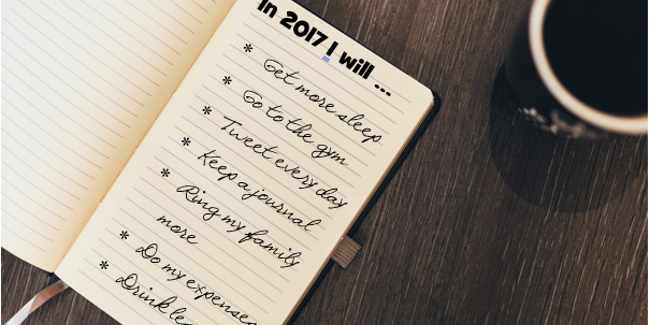 In 2017 I will ...
* Get more sleep
* Go to the gym
* Tweet every day
* Keep a journal
* Ring my family
more
* Do my expenses
* Drink